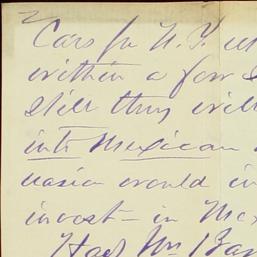 Cars for N. Y.
within a few
Still they will
into Mexican
would in
invest - in Mex
Had Wm Bar